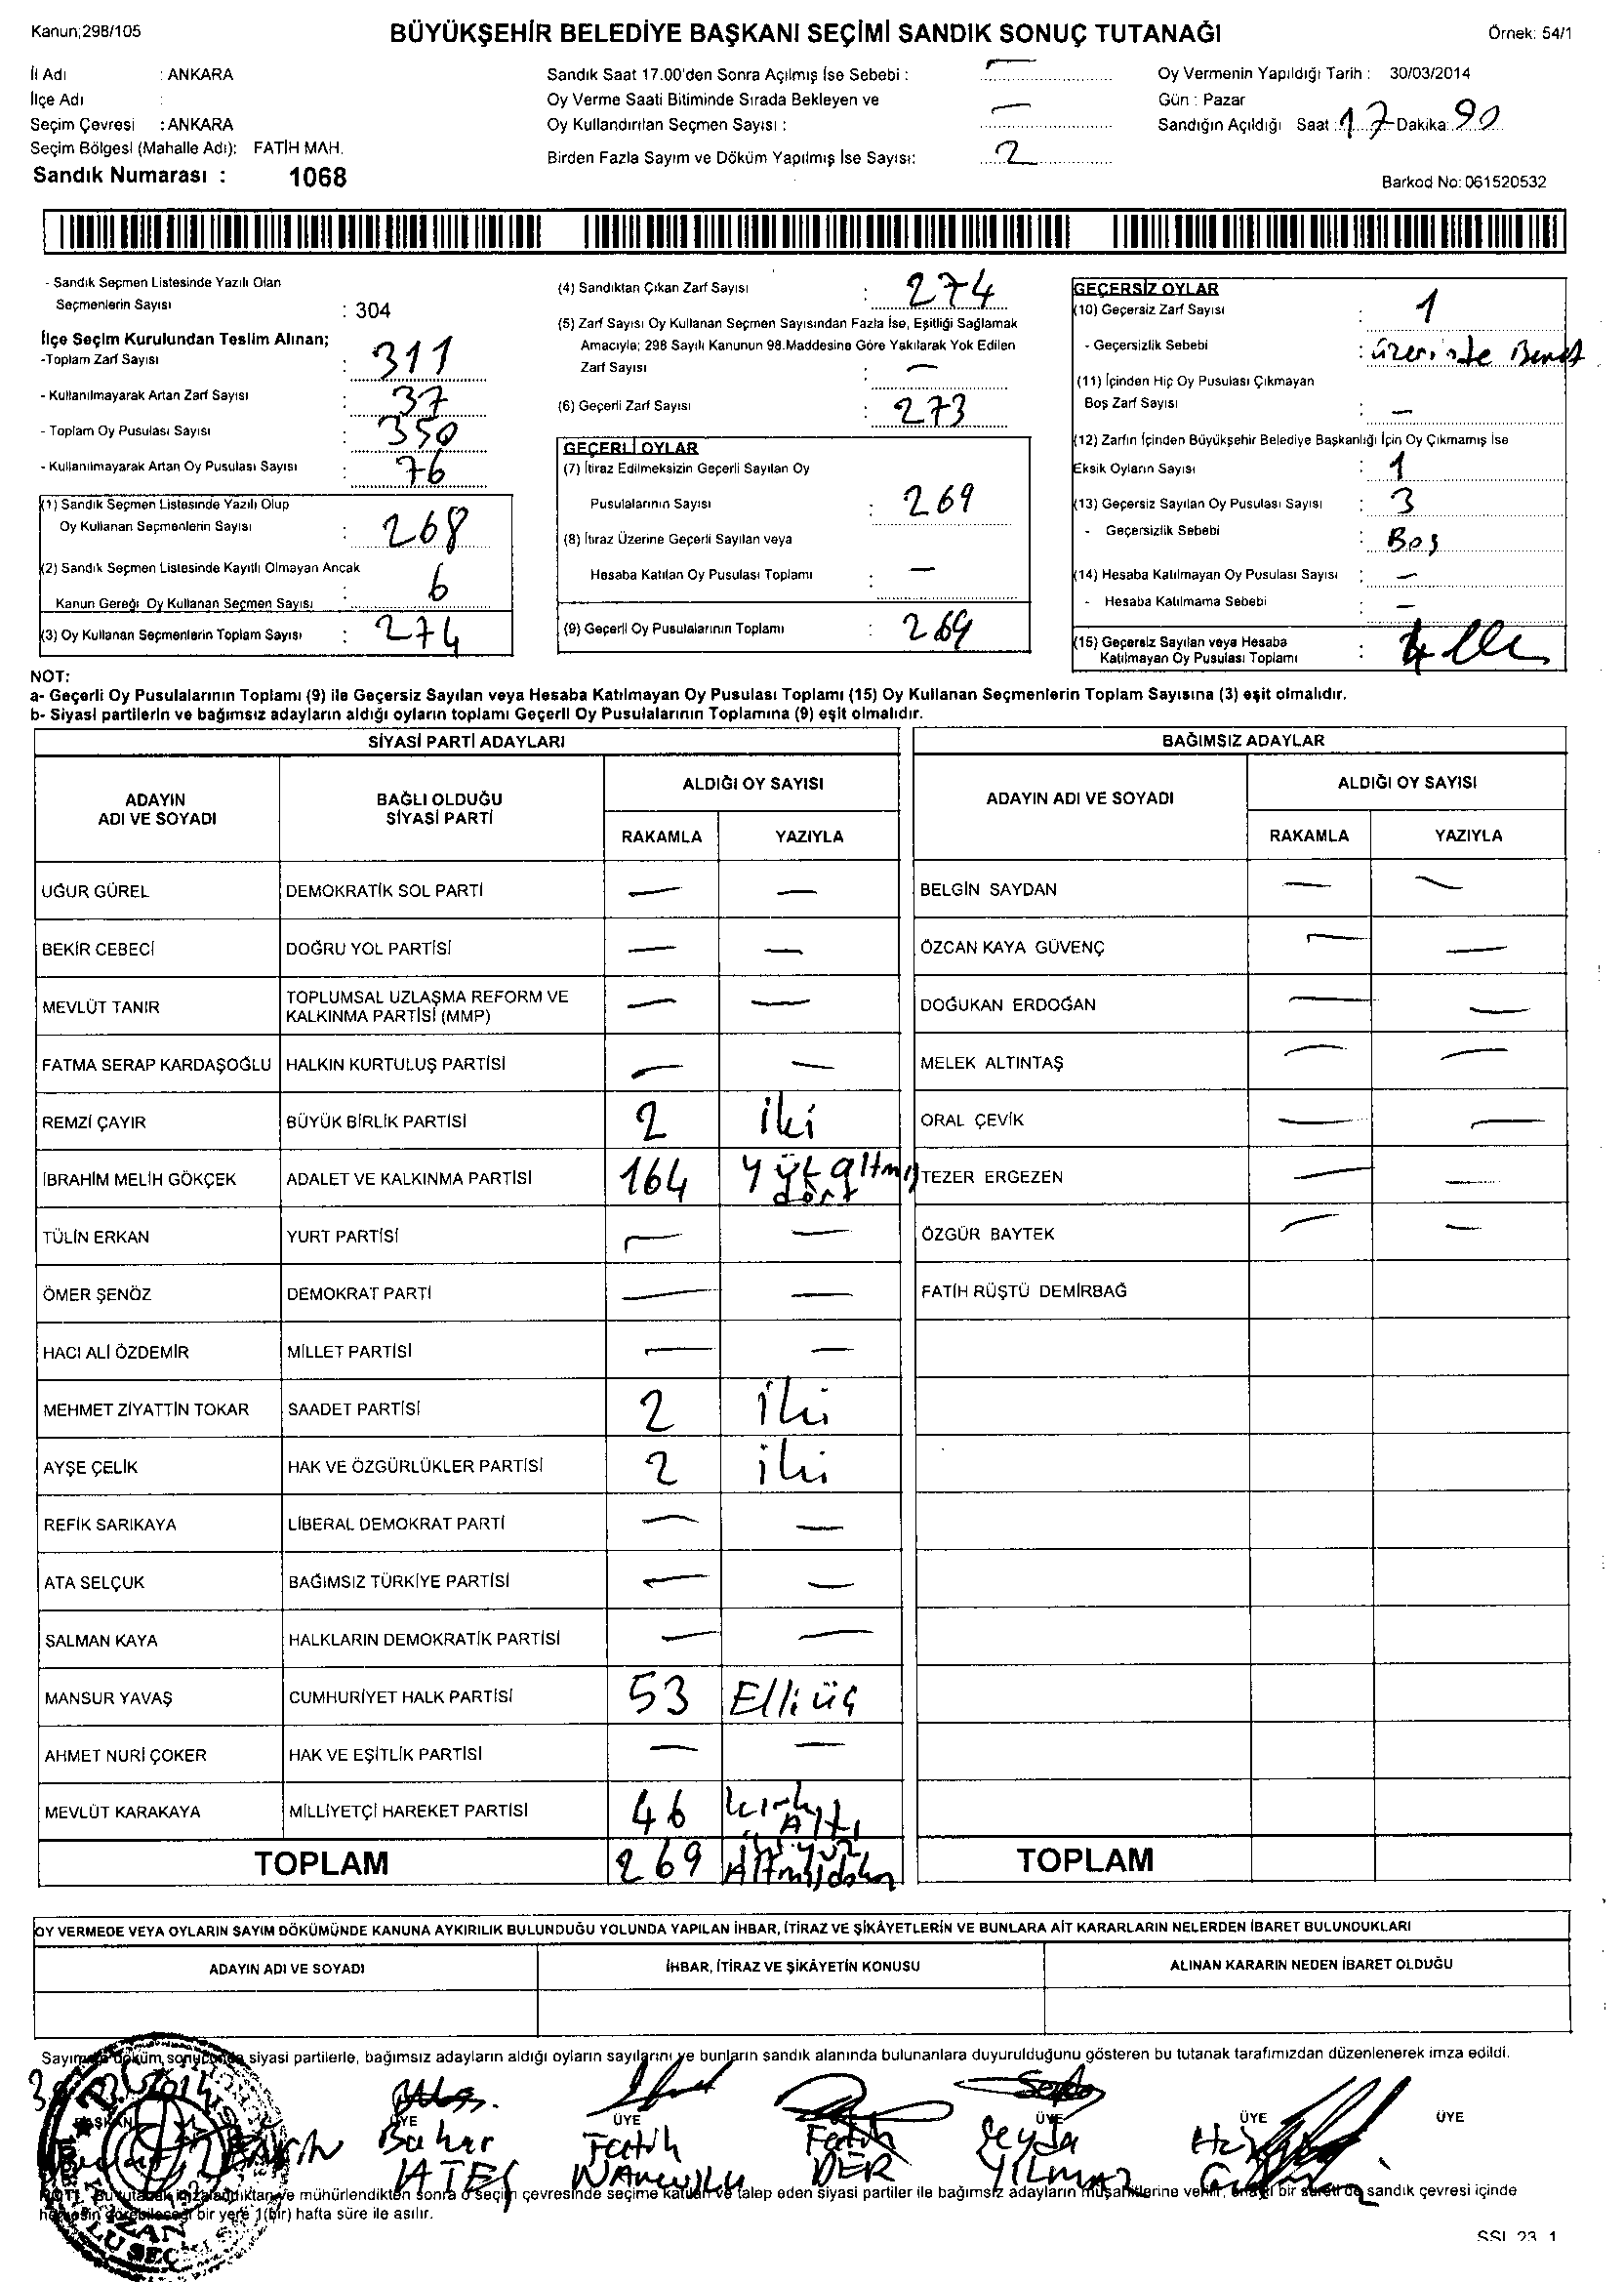 Kanun;298/105
BÜYÜKŞEHİR BELEDİYE BAŞKANI SEÇİMİ SANDIK SONUÇ TUTANAĞI
Örnek: 54/1
İl Adı : ANKARA
İlçe Adı :
Seçim Çevresi : ANKARA
Seçim Bölgesi (Mahalle Adı): FATİH MAH.
Sandık Numarası : 1068
Sandık Saat 17.00'den Sonra Açılmış İse Sebebi : —
Oy Verme Saati Bitiminde Sırada Bekleyen ve
Oy Kullandırılan Seçmen Sayısı : —
Birden Fazla Sayım ve Döküm Yapılmış İse Sayısı: 2
Oy Vermenin Yapıldığı Tarih : 30/03/2014
Gün : Pazar
Sandığın Açıldığı Saat : 17 Dakika: 90
Barkod No: 061520532
- Sandık Seçmen Listesinde Yazılı Olan
Seçmenlerin Sayısı : 304
İlçe Seçim Kurulundan Teslim Alınan;
-Toplam Zarf Sayısı : 311
- Kullanılmayarak Artan Zarf Sayısı : 37
- Toplam Oy Pusulası Sayısı : 350
- Kullanılmayarak Artan Oy Pusulası Sayısı : 76
(1) Sandık Seçmen Listesinde Yazılı Olup
Oy Kullanan Seçmenlerin Sayısı : 268
(2) Sandık Seçmen Listesinde Kayıtlı Olmayan Ancak
Kanun Gereği Oy Kullanan Seçmen Sayısı : 6
(3) Oy Kullanan Seçmenlerin Toplam Sayısı : 274
(4) Sandıktan Çıkan Zarf Sayısı : 274
(5) Zarf Sayısı Oy Kullanan Seçmen Sayısından Fazla İse, Eşitliği Sağlamak
Amacıyla; 298 Sayılı Kanunun 98.Maddesine Göre Yakılarak Yok Edilen
Zarf Sayısı : —
(6) Geçerli Zarf Sayısı : 273
GEÇERLİ OYLAR
(7) İtiraz Edilmeksizin Geçerli Sayılan Oy
Pusulalarının Sayısı : 269
(8) İtiraz Üzerine Geçerli Sayılan veya
Hesaba Katılan Oy Pusulası Toplamı : —
(9) Geçerli Oy Pusulalarının Toplamı : 269
GEÇERSİZ OYLAR
(10) Geçersiz Zarf Sayısı : 1
- Geçersizlik Sebebi : üzerinde
(11) İçinden Hiç Oy Pusulası Çıkmayan
Boş Zarf Sayısı : —
(12) Zarfın İçinden Büyükşehir Belediye Başkanlığı İçin Oy Çıkmamış İse
Eksik Oyların Sayısı : 1
(13) Geçersiz Sayılan Oy Pusulası Sayısı : 3
- Geçersizlik Sebebi : Boş
(14) Hesaba Katılmayan Oy Pusulası Sayısı : —
- Hesaba Katılmama Sebebi : —
(15) Geçersiz Sayılan veya Hesaba
Katılmayan Oy Pusulası Toplamı : 4
NOT:
a- Geçerli Oy Pusulalarının Toplamı (9) ile Geçersiz Sayılan veya Hesaba Katılmayan Oy Pusulası Toplamı (15) Oy Kullanan Seçmenlerin Toplam Sayısına (3) eşit olmalıdır.
b- Siyasi partilerin ve bağımsız adayların aldığı oyların toplamı Geçerli Oy Pusulalarının Toplamına (9) eşit olmalıdır.
SİYASİ PARTİ ADAYLARI
ADAYIN ADI VE SOYADI BAĞLI OLDUĞU SİYASİ PARTİ ALDIĞI OY SAYISI
RAKAMLA YAZIYLA
UĞUR GÜREL DEMOKRATİK SOL PARTİ — —
BEKİR CEBECİ DOĞRU YOL PARTİSİ — —
MEVLÜT TANIR TOPLUMSAL UZLAŞMA REFORM VE KALKINMA PARTİSİ (MMP) — —
FATMA SERAP KARDAŞOĞLU HALKIN KURTULUŞ PARTİSİ — —
REMZİ ÇAYIR BÜYÜK BİRLİK PARTİSİ 2 iki
İBRAHİM MELİH GÖKÇEK ADALET VE KALKINMA PARTİSİ 164 yüz altmış dört
TÜLİN ERKAN YURT PARTİSİ — —
ÖMER ŞENÖZ DEMOKRAT PARTİ — —
HACI ALİ ÖZDEMİR MİLLET PARTİSİ — —
MEHMET ZİYATTİN TOKAR SAADET PARTİSİ 2 iki
AYŞE ÇELİK HAK VE ÖZGÜRLÜKLER PARTİSİ 2 iki
REFİK SARIKAYA LİBERAL DEMOKRAT PARTİ — —
ATA SELÇUK BAĞIMSIZ TÜRKİYE PARTİSİ — —
SALMAN KAYA HALKLARIN DEMOKRATİK PARTİSİ — —
MANSUR YAVAŞ CUMHURİYET HALK PARTİSİ 53 Elli üç
AHMET NURİ ÇOKER HAK VE EŞİTLİK PARTİSİ — —
MEVLÜT KARAKAYA MİLLİYETÇİ HAREKET PARTİSİ 46 kırk Altı
TOPLAM 269 iki yüz Altmışdokuz
BAĞIMSIZ ADAYLAR
ADAYIN ADI VE SOYADI ALDIĞI OY SAYISI
RAKAMLA YAZIYLA
BELGİN SAYDAN — —
ÖZCAN KAYA GÜVENÇ — —
DOĞUKAN ERDOĞAN — —
MELEK ALTINTAŞ — —
ORAL ÇEVİK — —
TEZER ERGEZEN — —
ÖZGÜR BAYTEK — —
FATİH RÜŞTÜ DEMİRBAĞ
TOPLAM
OY VERMEDE VEYA OYLARIN SAYIM DÖKÜMÜNDE KANUNA AYKIRILIK BULUNDUĞU YOLUNDA YAPILAN İHBAR, İTİRAZ VE ŞİKÂYETLERİN VE BUNLARA AİT KARARLARIN NELERDEN İBARET BULUNDUKLARI
ADAYIN ADI VE SOYADI İHBAR, İTİRAZ VE ŞİKÂYETİN KONUSU ALINAN KARARIN NEDEN İBARET OLDUĞU
Sayım döküm sonucunda siyasi partilerle, bağımsız adayların aldığı oyların sayılarını ve bunların sandık alanında bulunanlara duyurulduğunu gösteren bu tutanak tarafımızdan düzenlenerek imza edildi.
BAŞKAN ÜYE ÜYE ÜYE ÜYE ÜYE
Bahar Fatih Fatih Şeyda
ATEŞ DER YILMAZ
NOT: Bu tutanak imzalandıktan ve mühürlendikten sonra o seçim çevresinde seçime katılan ve talep eden siyasi partiler ile bağımsız adayların müşahitlerine verilir, onaylı bir sureti de sandık çevresi içinde
herkesin görebileceği bir yere 1(bir) hafta süre ile asılır.
SSI 23 1